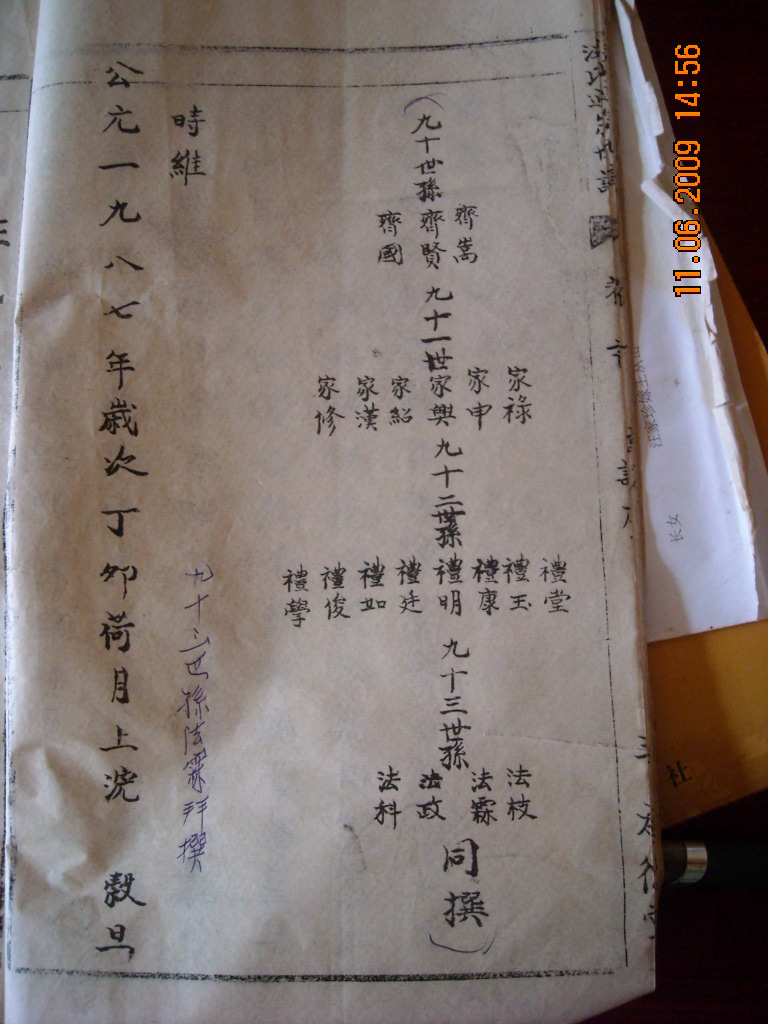 (九十世孫
齊嵩
齊賢
齊國
九十一世
家祿
家申
家興
家紹
家漢
家修
九十二世孫
禮堂
禮玉
禮康
禮明
禮廷
禮如
禮俊
禮學
九十三世孫
法枝
法霖
法政
法科
同撰)
時維
九十三世孫法霖拜撰
公元一九八七年歲次丁卯荷月上浣 穀旦
11.06.2009 14:56
长女
社